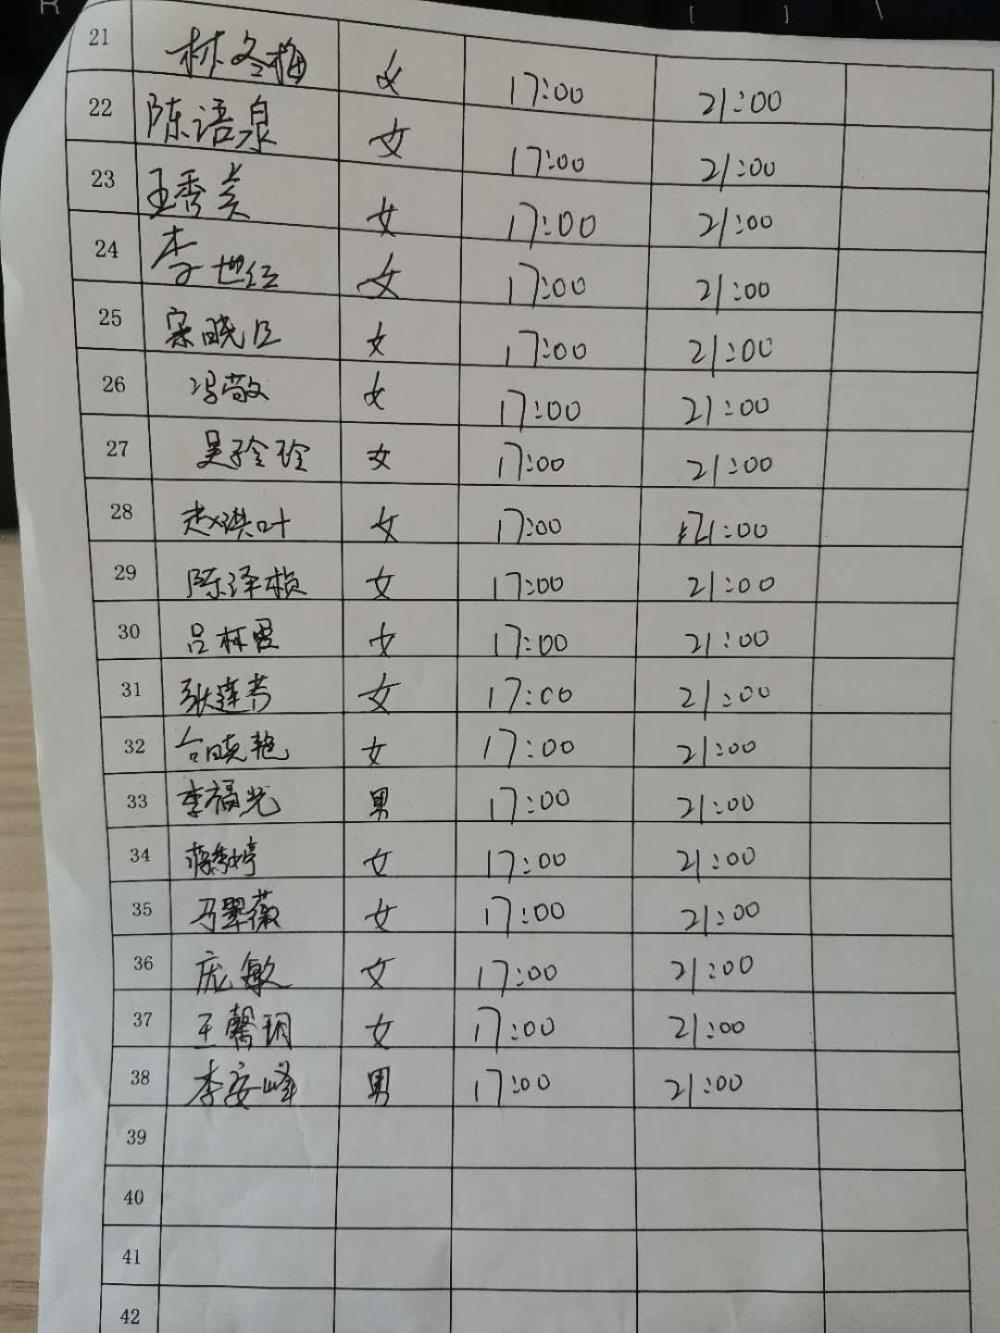 21 林冬梅 女 17:00 21:00
22 陈语泉 女 17:00 21:00
23 王秀美 女 17:00 21:00
24 李世红 女 17:00 21:00
25 宋晓臣 女 17:00 21:00
26 冯敬 女 17:00 21:00
27 吴玲玲 女 17:00 21:00
28 赵洪叶 女 17:00 21:00
29 陈泽桢 女 17:00 21:00
30 吕林霞 女 17:00 21:00
31 耿莲芳 女 17:00 21:00
32 台晓艳 女 17:00 21:00
33 李福光 男 17:00 21:00
34 女 17:00 21:00
35 马翠薇 女 17:00 21:00
36 庞敏 女 17:00 21:00
37 王馨玥 女 17:00 21:00
38 李安峰 男 17:00 21:00
39
40
41
42